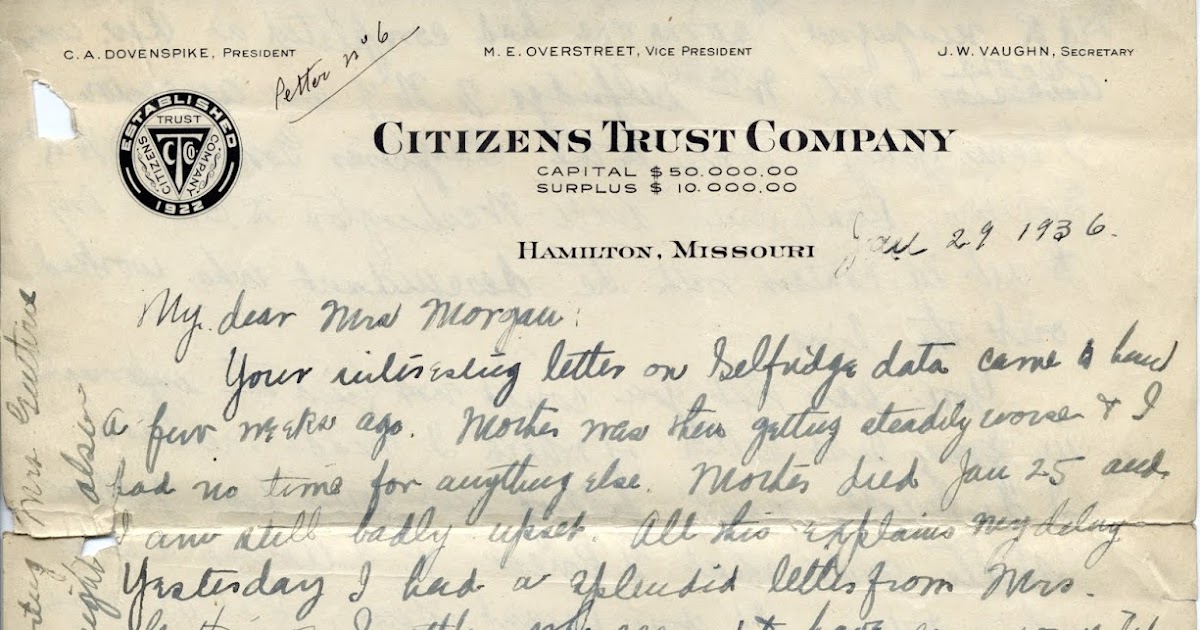 C. A. DOVENSPIKE, PRESIDENT
M. E. OVERSTREET, VICE PRESIDENT
J. W. VAUGHN, SECRETARY
Letter no 6
ESTABLISHED
TRUST
CITIZENS
COMPANY
T C Co.
1922
CITIZENS TRUST COMPANY
CAPITAL $50.000.00
SURPLUS $10.000.00
HAMILTON, MISSOURI
Jan 29 1936.
My dear Mrs Morgan:
Your interesting letter on Selfridge data came to hand
a few weeks ago. Mother was then getting steadily worse & I
had no time for anything else. Mother died Jan 25 and
I am still badly upset. All this explains my delay
Yesterday I had a splendid letter from Mrs.
Mrs Guthrie
also